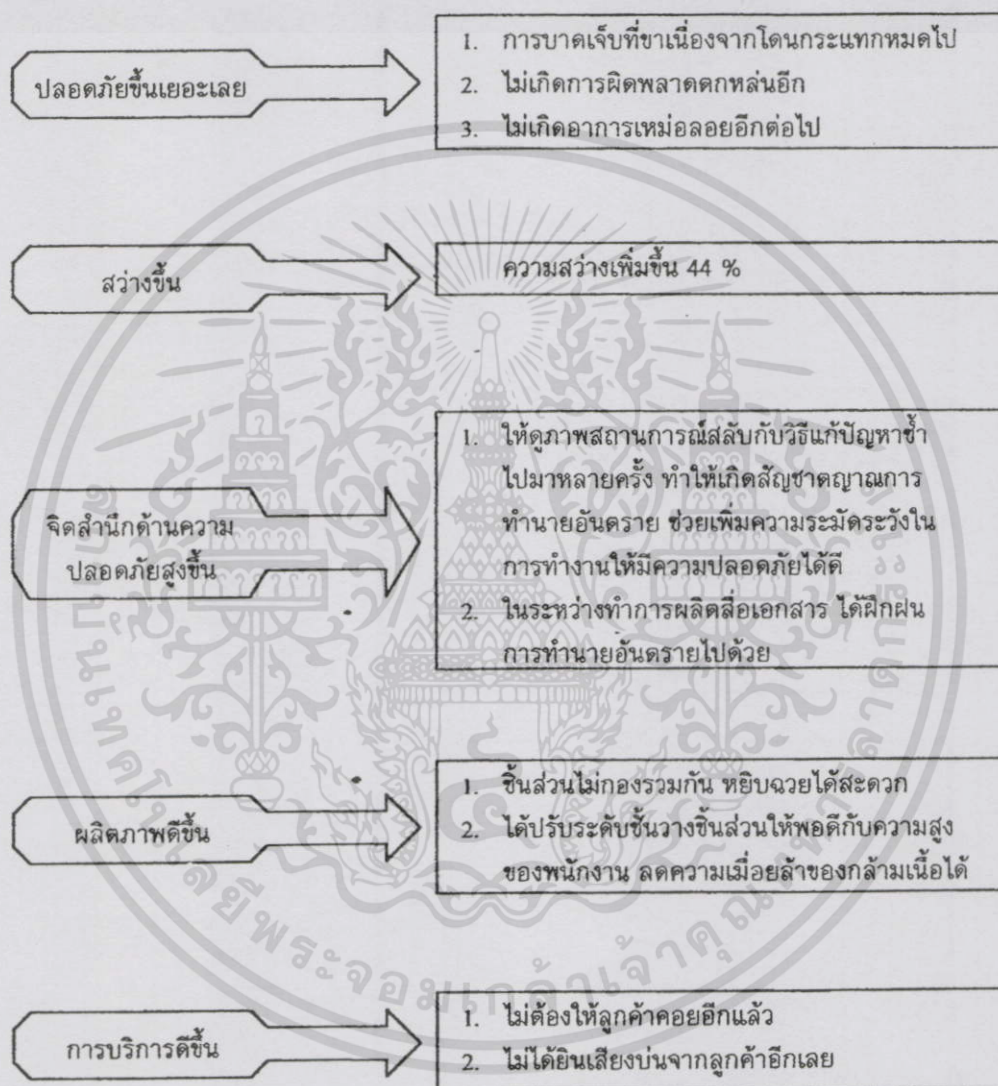 ปลอดภัยขึ้นเยอะเลย
1. การบาดเจ็บที่ขาเนื่องจากโดนกระแทกหมดไป
2. ไม่เกิดการผิดพลาดตกหล่นอีก
3. ไม่เกิดอาการเหม่อลอยอีกต่อไป
สว่างขึ้น
ความสว่างเพิ่มขึ้น 44 %
จิตสำนึกด้านความ
ปลอดภัยสูงขึ้น
1. ให้ดูภาพสถานการณ์สลับกับวิธีแก้ปัญหาซ้ำ
ไปมาหลายครั้ง ทำให้เกิดสัญชาตญาณการ
ทำนายอันตราย ช่วยเพิ่มความระมัดระวังใน
การทำงานให้มีความปลอดภัยได้ดี
2. ในระหว่างทำการผลิตสื่อเอกสาร ได้ฝึกฝน
การทำนายอันตรายไปด้วย
ผลิตภาพดีขึ้น
1. ชิ้นส่วนไม่กองรวมกัน หยิบฉวยได้สะดวก
2. ได้ปรับระดับชั้นวางชิ้นส่วนให้พอดีกับความสูง
ของพนักงาน ลดความเมื่อยล้าของกล้ามเนื้อได้
การบริการดีขึ้น
1. ไม่ต้องให้ลูกค้าคอยอีกแล้ว
2. ไม่ได้ยินเสียงบ่นจากลูกค้าอีกเลย
สถาบันเทคโนโลยีพระจอมเกล้าเจ้าคุณทหารลาดกระบัง